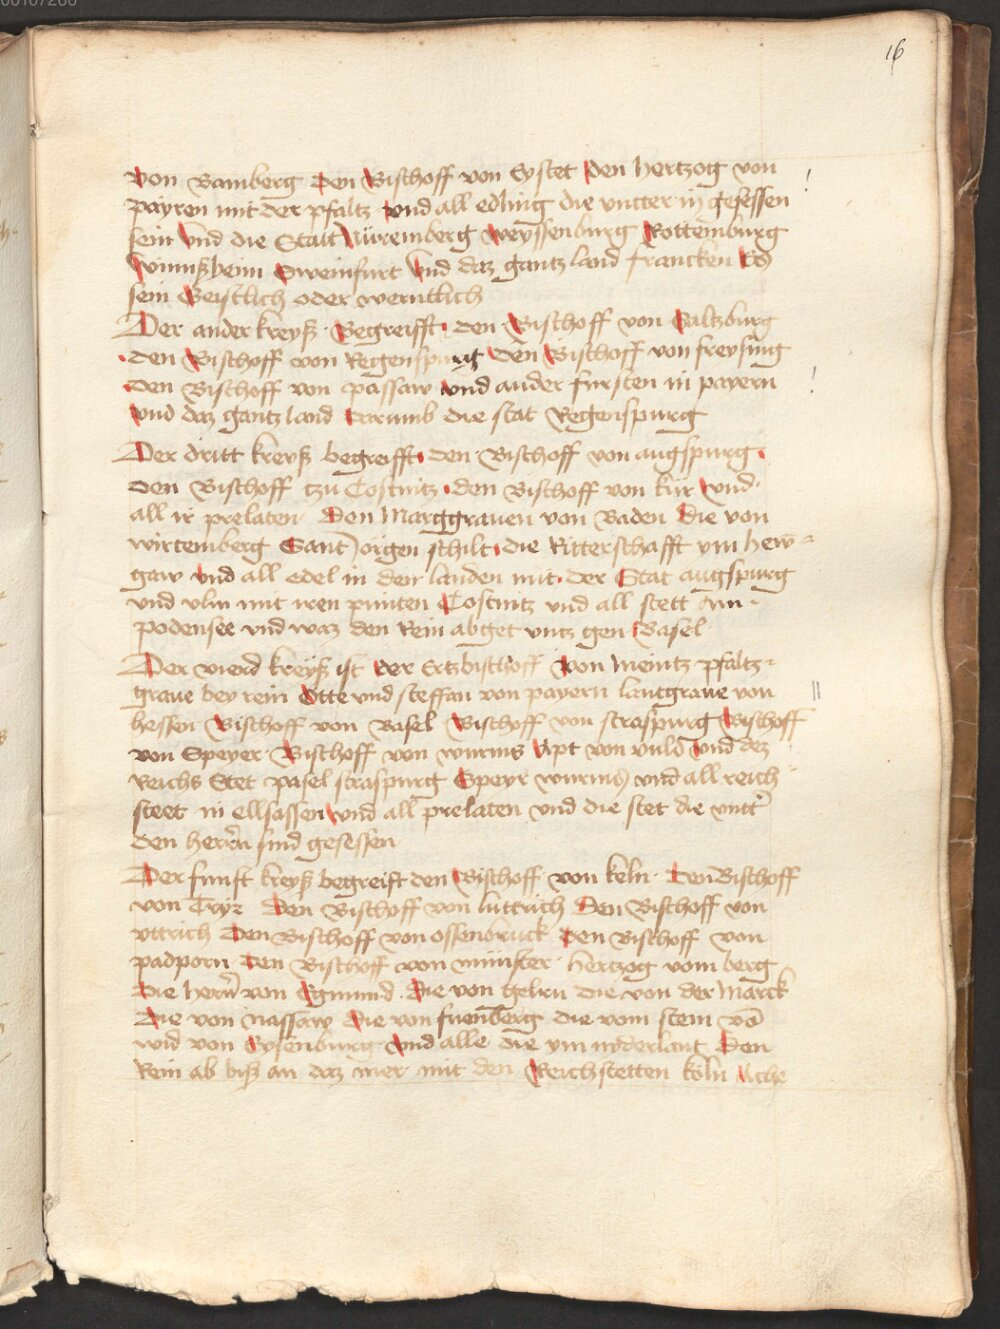 00107200
16
von Bamberg Den Bischoff von Eystet Den hertzog von
payren mit der pfaltz vnd all edling die vntter in gesessen
sein Vnd die Statt Nüremberg Weyssenburg Rottemburg
Winnßheim Sweinfurt Vnd daz gantz land francken Es
sein Geistlich oder werntlich
Der ander kreyß Begreifft den Bischoff von Saltzburg
den Bischoff von Regenspurg Den Bischoff von freysing
den Bischoff von passaw vnd ander fursten in payern
vnd daz gantz land darumb die stat Regenspurg
Der dritt kreyß begreifft den Bischoff von augspurg
Den Bischoff tzu Costnitz den Bischoff von kur vnd
all ir prelaten Den Marggrauen von Baden Die von
wirtemberg Sant Jorgen schilt die Ritterschafft ym hew-
gaw vnd all edel in den landen mit der Stat augspurg
vnd vlm mit iren puntten Costnitz vnd all stett am
podensee vnd waz den Rein abget vntz gen Basel
Der vierd kreyß ist der Ertzbischoff Von meintz pfaltz-
graue bey rein Otte vnd steffan von payern lantgraue von
hessen Bischoff von Basel Bischoff von straspurg Bischoff
von Speyer Bischoff von wurms Apt von vuld vnd dez
Reichs Stet pasel straspurg Speyr wurms vnd all reich
steet in ellsassen vnd all prelaten vnd die stet die vntter
den herrn sind gesessen
Der funft kreyß begreift den Bischoff von keln Den Bischoff
von Tryr Den Bischoff von luttrich Den Bischoff von
vttrich Den Bischoff von ossenbruck Den Bischoff von
padporn den Bischoff von münster hertzog vom berg
Die hern von Egmund Die von gelrn die von der Marck
Die von nassaw Die von firenberg die vom stein vo
wid von Eysenburg vnd alle die ym nyderlant Den
Rein ab biß an daz mer mit den Reichstetten köln Ache